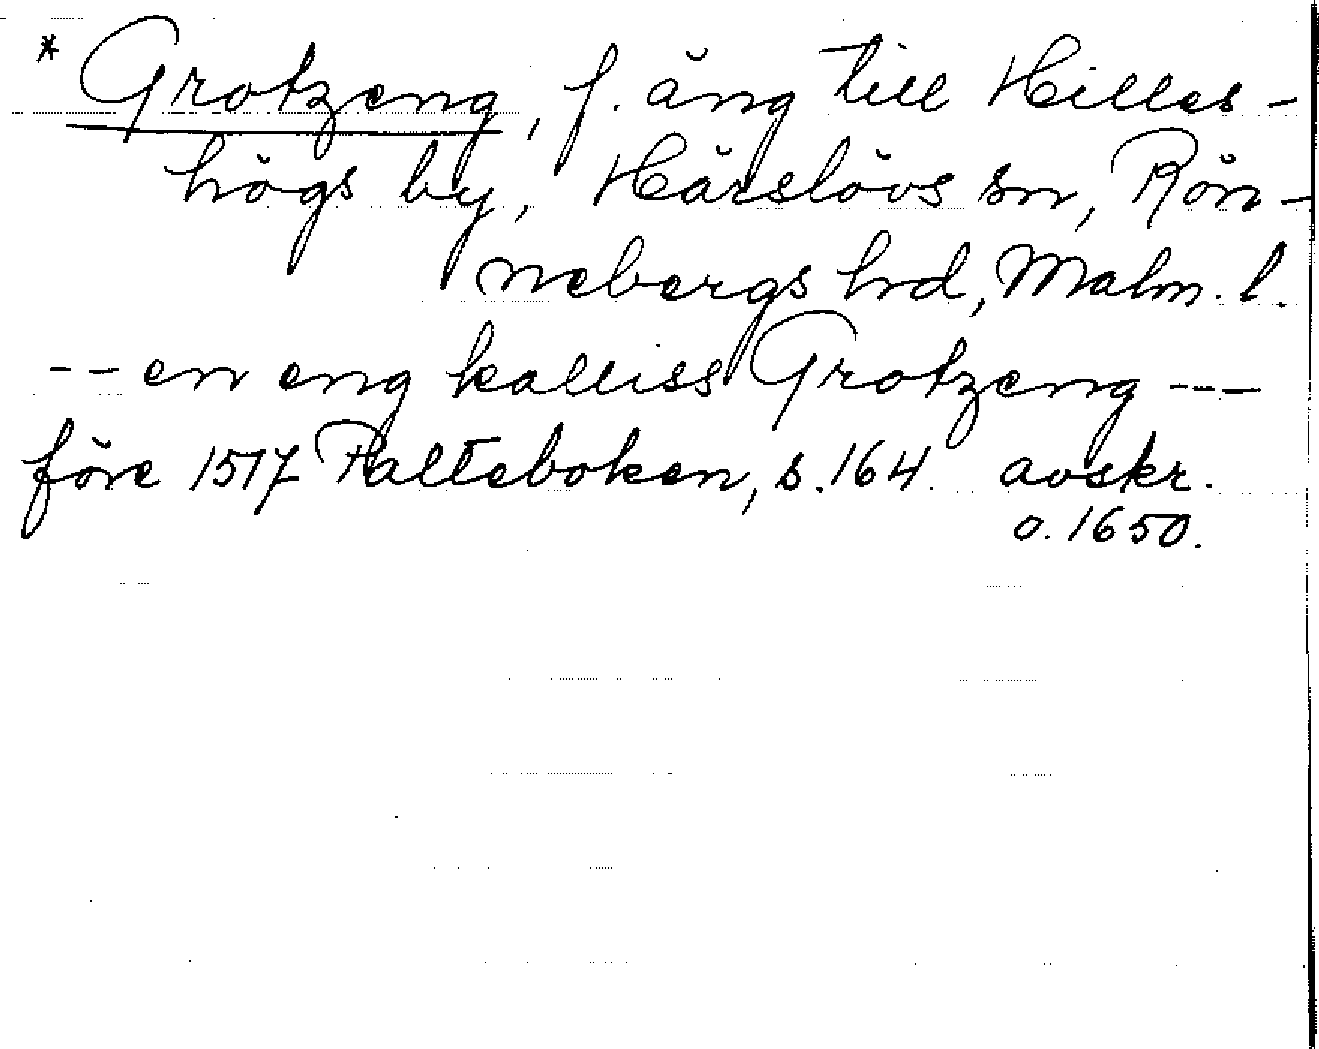 * Grotzeng, f. äng till Hilles-
högs by, Härslövs sn, Rön-
nebergs hd, Malm. l.
-- en eng kalliss Grotzeng ---
före 1517 Palteboken, s. 164. avskr.
o. 1650.